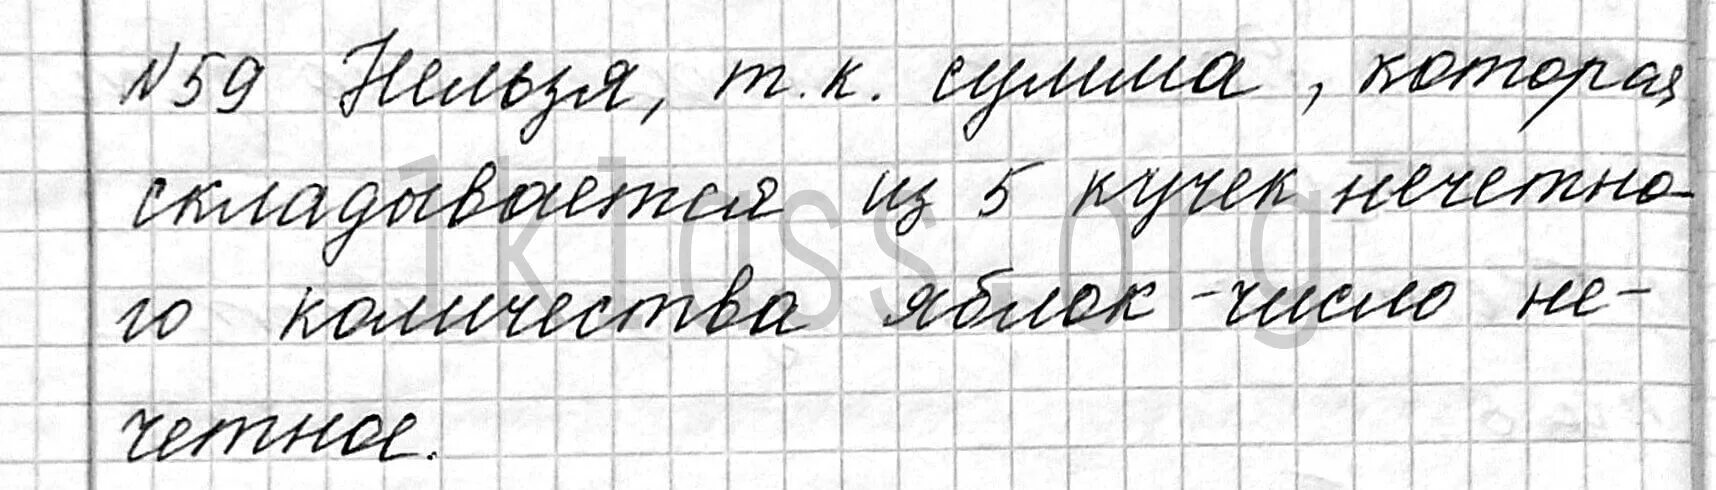 №59 Нельзя, т.к. сумма, которая
складывается из 5 кучек нечетно-
го количества яблок - число не-
четное.
1klass.org